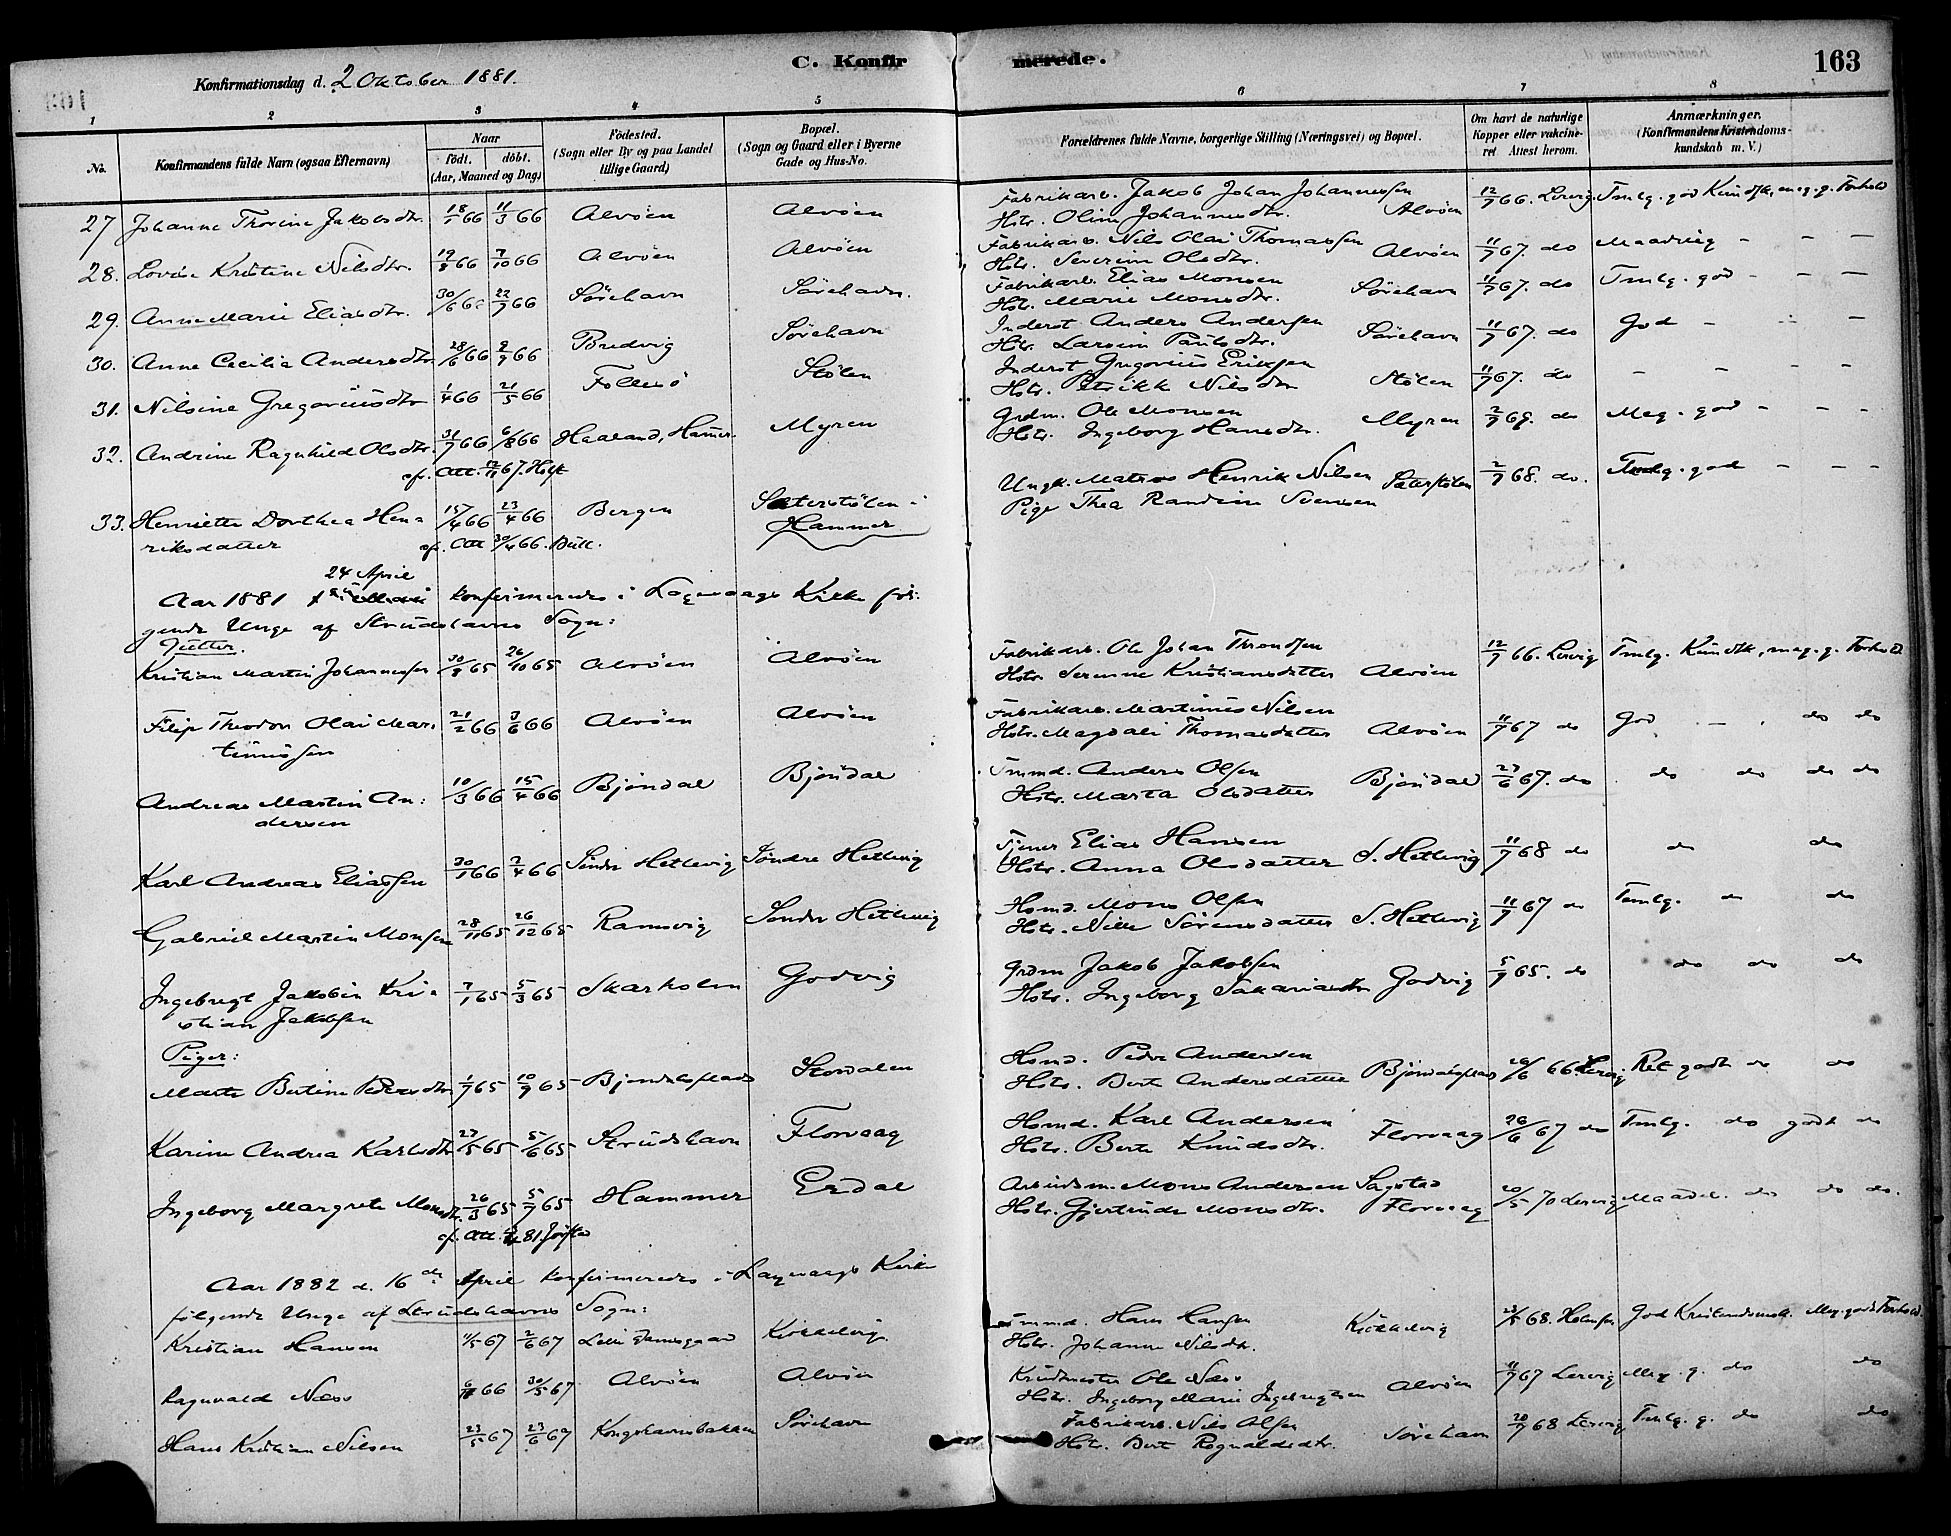 C. Konfirmerede.
163
Konfirmationsdag d. 2 Oktober 1881.
1 2 3 4 5 6 7 8
No.
Konfirmandens fulde Navn (ogsaa Efternavn)
Naar
födt. döbt.
(Aar, Maaned og Dag)
Födested.
(Sogn eller By og paa Landet
tillige Gaard)
Bopæl.
(Sogn og Gaard eller i Byerne
Gade og Hus-No.
Forældrenes fulde Navne, borgerlige Stilling (Næringsvei) og Bopæl.
Om havt de naturlige
Kopper eller vakcine-
ret. Attest herom.
Anmærkninger.
(Konfirmandens Kristendoms-
kundskab m. V.)
27 Johanne Thorine Jakobsdtr. 18/1 66 11/3 66 Alvöen Alvöen Fabrikarb. Jakob Johan Johannessen
Hstr. Oline Johannesdtr. Alvöen 12/7 66. Lervig. Tmlg. god Kundsk., meg. g. Forhold
28. Lovise Kristine Nilsdtr. 19/8 66 7/10 66 Alvöen Alvöen Fabrikarb. Nils Olai Thomassen
Hstr. Severine Olsdtr. Alvöen 11/7 67. do Maadelig - - -
29. Anne Marie Eliasdtr. 30/6 66 22/7 66 Sörehavn Sörehavn. Fabrikarb. Elias Monsen
Hst. Marie Monsdtr. Sörehavn 11/7 67. do Tmlg. god - - -
30. Anne Cecilia Andersdtr. 28/6 66 2/9 66 Bredvig Sörehavn Inderst Anders Andersen
Hstr. Larsine Paulsdtr. Sörehavn 11/7 67. do God - - -
31. Nilsine Gregoriusdtr 1/4 66 21/5 66 Follesö Stölen Inderst Gregorius Eriksen
Hstr. Petrikke Nilsdtr Stölen 11/7 67. do - - - -
32. Andrine Ragnhild Olsdtr. 31/7 66 6/8 66 Haaland, Hamre Myren Grdm. Ole Monsen
Hstr. Ingeborg Hansdtr. Myren 2/7 69. do Meg. god - - -
33. Henriette Dorthea Hen-
riksdatter 15/4 66 23/4 66 Bergen Sæterstölen i
Hammer Ungk. Matros Henrik Nilsen
Pige Thea Randine Svensen Sæterstölen 2/7 68. do. Tmlg. god - - -
ef. Att 30/4 66. Bull.
24 April
Aar 1881 konfirmeredes i Laxevaags Kirke föl-
gende Unge af Strudshavns Sogn:
Gutter.
Kristian Martin Johannessen 30/8 65 26/10 65 Alvöen Alvöen Fabrikarb. Ole Johan Throndsen
Hstr. Serenne Kristiansdatter Alvöen 12/7 66. Lervig Tmlg. Kundsk., meg. g. Forhold.
Filip Theodor Olai Mar-
tinussen 21/2 66 3/6 66 Alvöen Alvöen Fabrikarb. Martinus Nilsen
Hstr. Magdali Thomasdatter Alvöen 11/7 67 do God - do do
Andreas Martin An-
dersen 10/3 66 15/4 66 Bjöndal Bjöndal Tmmd. Anders Olsen
Hstr. Marta Olsdatter Bjöndal 27/6 67. do do do do do
Karl Andreas Eliassen 30/1 66 2/4 66 Söndre Hetlevig Söndre Hetlevig Tjener Elias Hansen
Hstr. Anna Olsdatter S. Hetlevig 11/7 68 do do do
Gabriel Martin Monsen 28/11 65 26/12 65 Ramsvig Söndre Hetlevig Hsmd. Mons Olsen
Hstr. Nille Sörensdatter S. Hetlevig 11/7 67 do Tmlg. do do
Ingebregt Jakobin Kri-
stian Jakobsen 7/1 65 5/3 65 Skarholm Godvig Grdm Jakob Jakobsen
Hstr. Ingeborg Sakariasdtr Godvig 5/7 65. do do do do
Piger:
Marta Bertine Pedersdtr 1/7 65 10/9 65 Bjöndalsplads Stordalen Hsmd. Peder Andersen
Hstr. Berte Andersdatter Bjöndalsplads 26/6 66 Lervig. Ret godt do do
Karine Andrea Karlsdtr 27/5 65 5/6 65 Strudshavn Florvaag Hsmd. Karl Andersen
Hstr. Berte Knudsdtr. Florvaag 26/6 67 do Tmlg. do godt do
Ingeborg Margrete Monsdtr. 26/3 65 5/7 65 Hammer Erdal Arbeidsm. Mons Andersen Sagstad
Hstr. Gjertrude Monsdtr. Florvaag 20/5 70 Lervig Maadel. do do do.
Aar 1882 d. 16de April konfirmeredes i Laxevaags Kirke
fölgende Unge af Strudshavns Sogn:
Kristian Hansen 11/5 67 2/6 67 Lille Damsgaard Kjökkelvig Tmmd. Hans Hansen
Hstr. Johanne Nilsdtr. Kjökkelvig 23/5 68. God Kristendomsk. Meg. godt Forhold.
Ragnvald Næss 66 30/5 67 Alvöen Alvöen Krudtmester Ole Næss
Hstr. Ingeborg Marie Ingebrigtsen Alvöen 11/7 67 Lervig Meg. g. do do
Hans Kristian Nilsen 23/5 67 23/6 67 Kongshavnsbakken Sörehavn Fabrikarb. Nils Olsen
Hstr. Berte Regnaldsdtr. Sörehavn 20/7 68 Lervig Tmlg. g. do do